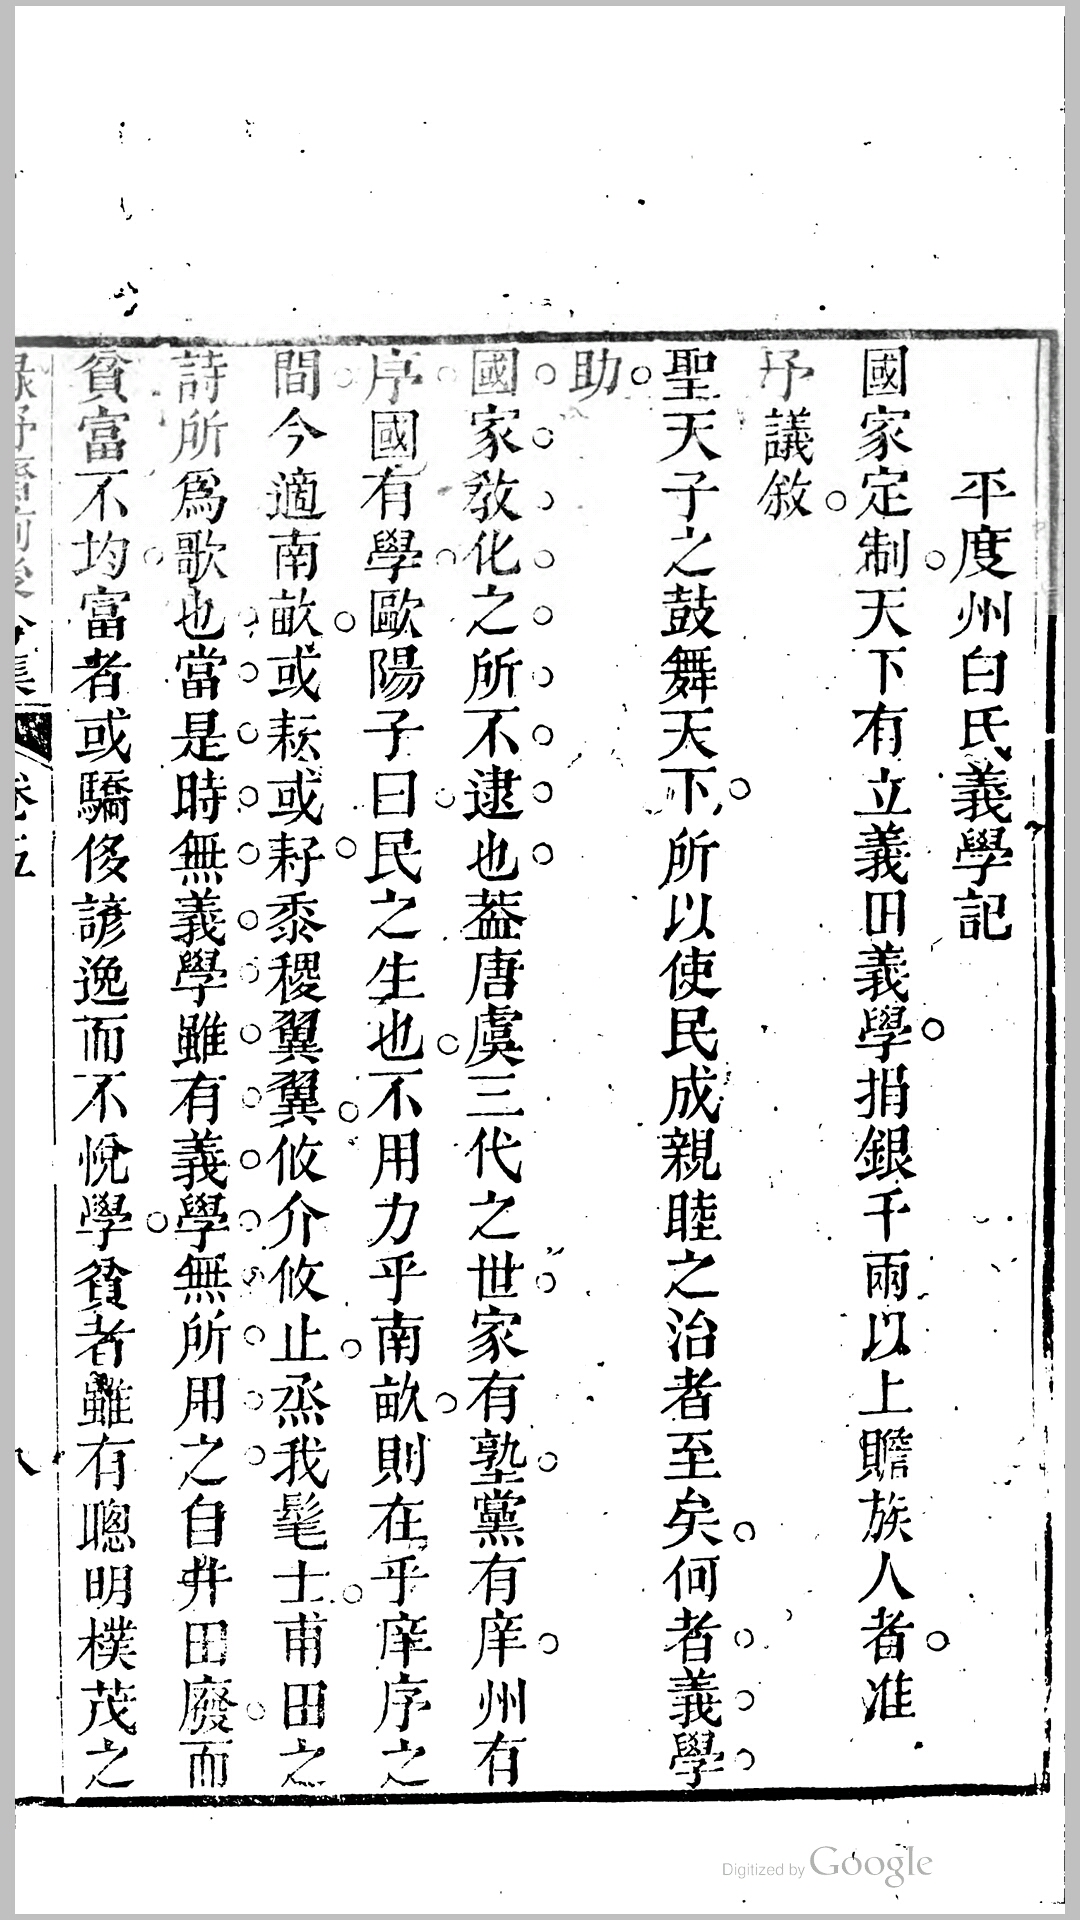 平度州白氏義學記
國家定制天下有立義田義學捐銀千兩以上贍族人者准
予議敘
聖天子之鼓舞天下所以使民成親睦之治者至矣何者義學
助
國家敎化之所不逮也葢唐虞三代之世家有塾黨有庠州有
序國有學歐陽子曰民之生也不用力乎南畝則在乎庠序之
間今適南畝或耘或耔黍稷翼翼攸介攸止烝我髦士甫田之
詩所爲歌也當是時無義學雖有義學無所用之自井田廢而
貧富不均富者或驕侈諺逸而不悅學貧者雖有聰明樸茂之
集 卷五
八
Digitized by Google